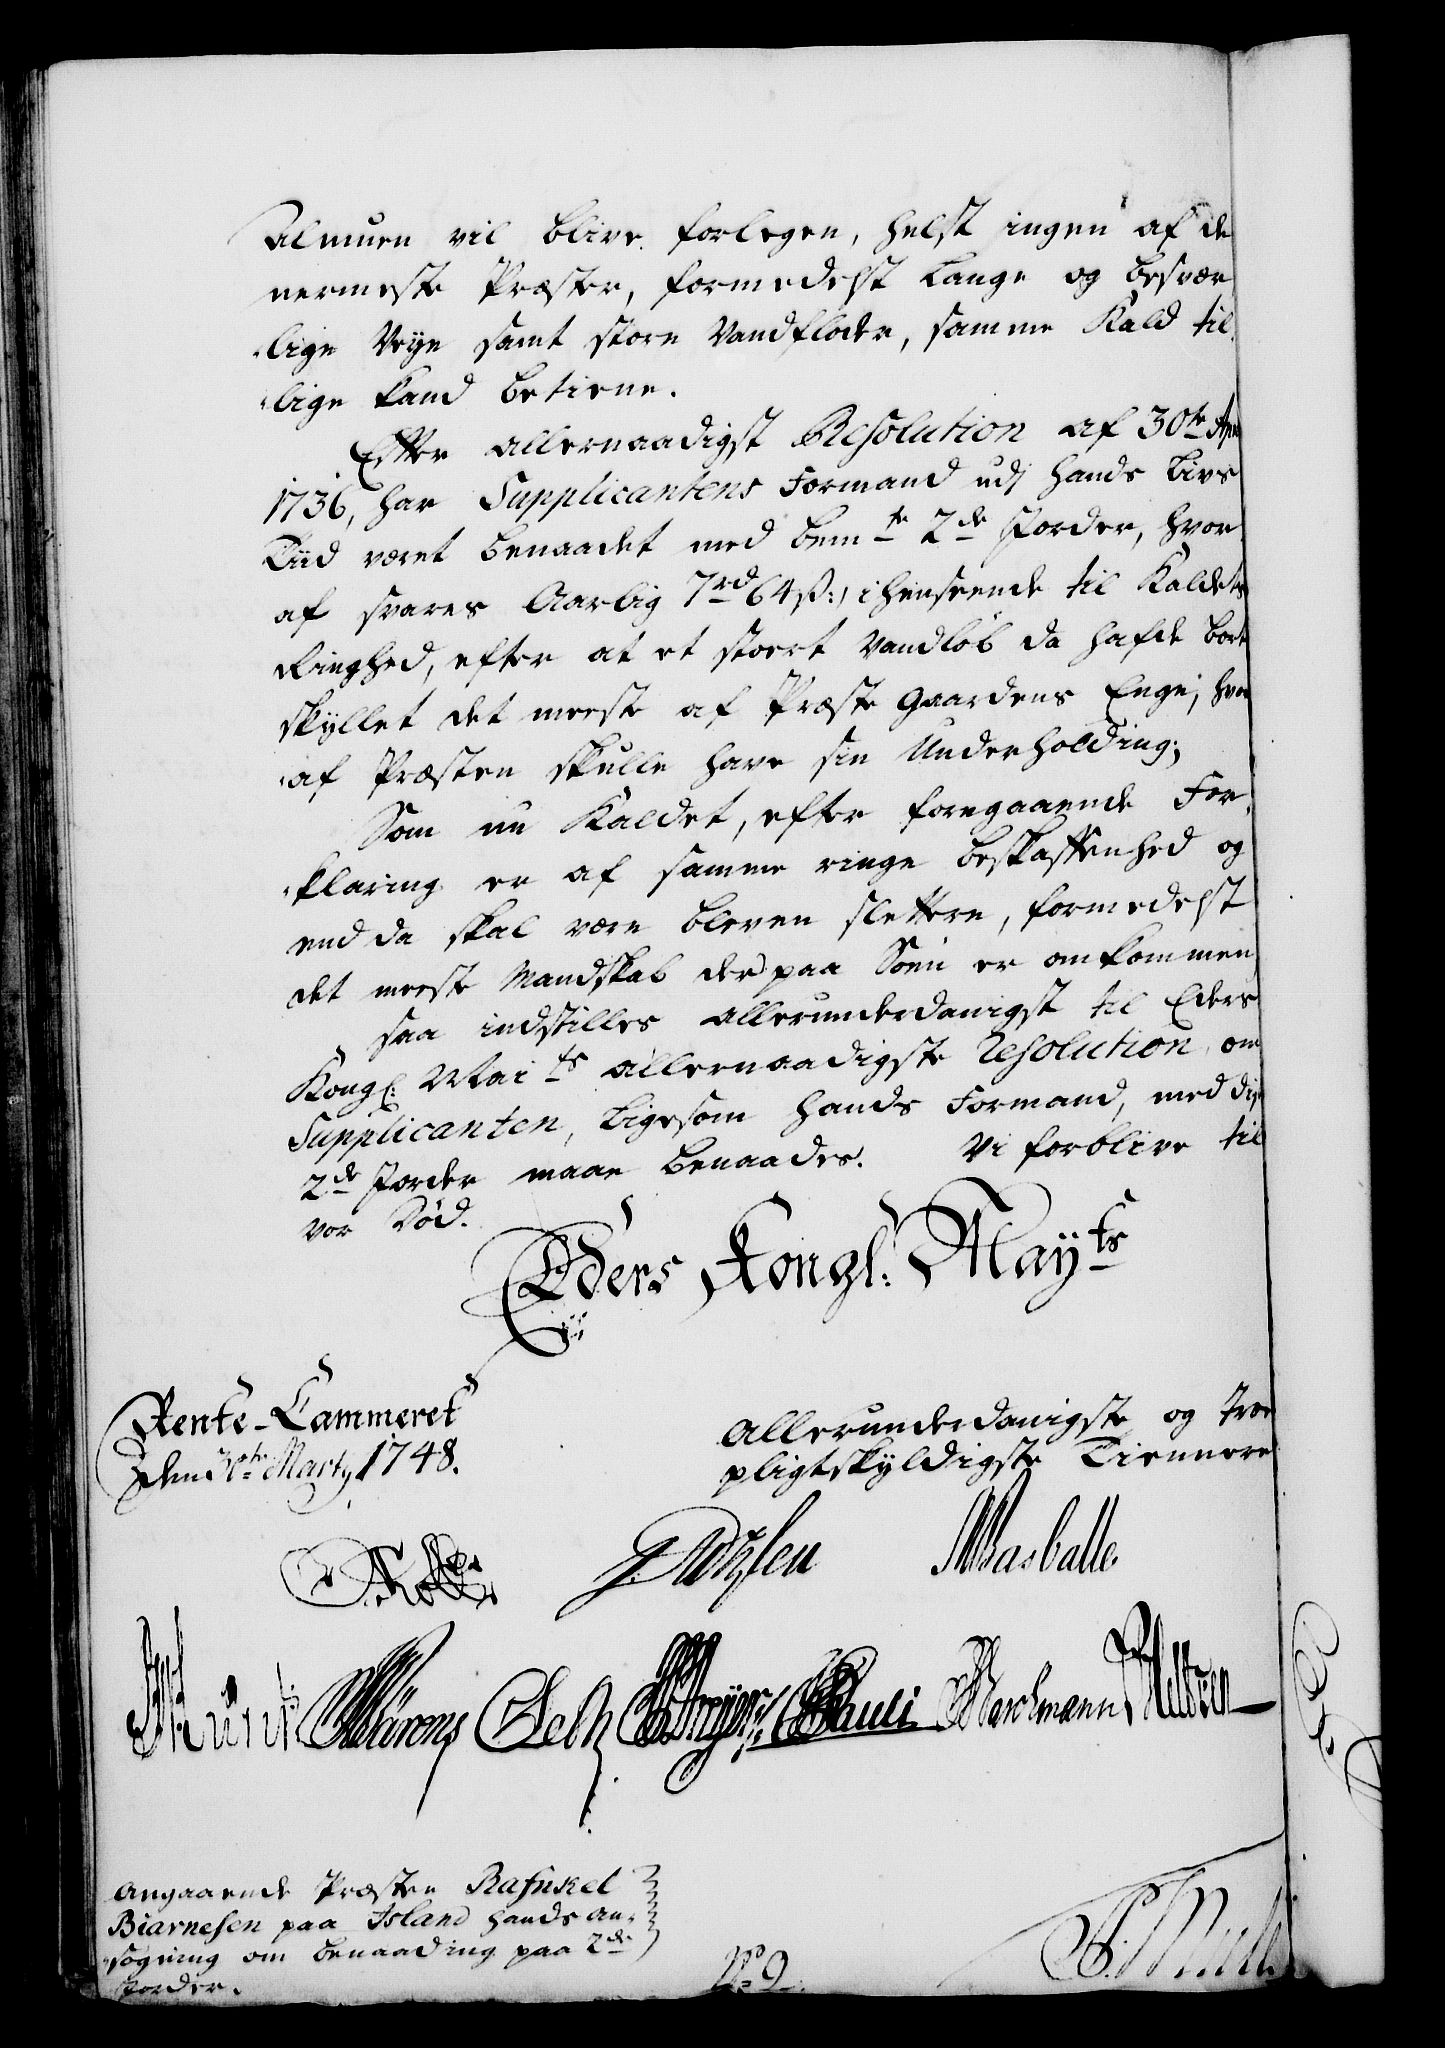 Almuen vil blive forlegen, helst ingen af de
nermeste Præster, formedelst lange og besvær
lige Veye samt store Vandfloder, samme Kald til-
lige kand betiene.
Efter allernaadigst Resolution af 30te Apr
1736, har Supplicantens Formand udj hands Livs
Tiid været benaadet med bemte 2de Jorder, hvor
af svares Aarlig 7rd 64ß:, i henseende til Kaldets
Ringhed, efter at et stoert Vandløb da hafde bort
skyllet det meeste af Præste Gaardens Enge, hvor
af Præsten skulle have sin Underholding;
Som nu Kaldet, efter foregaaende For-
klaring er af samme ringe beskaffenhed og
end da skal være bleven slettere, formedelst
det meeste Mandskab der paa Søen er omkommen
saa indstilles allerunderdanigst til Eders
Kongl: Maits allernaadigste Resolution, om
Supplicanten, ligesom hands Formand, med disse
2de Jorder maae benaades. Vi forblive til
vor Død.
Eders Kongl: Mayts
Rente-Cammeret
den 30te Marty 1748.
Allerunderdanigste og troe
pligtskyldigste Tiennere
Selh Pauli
Angaaende Præsten Rafnkel
Biarnesen paa Island hands an-
søgning om benaading paa 2de
Jorder.
No 9.